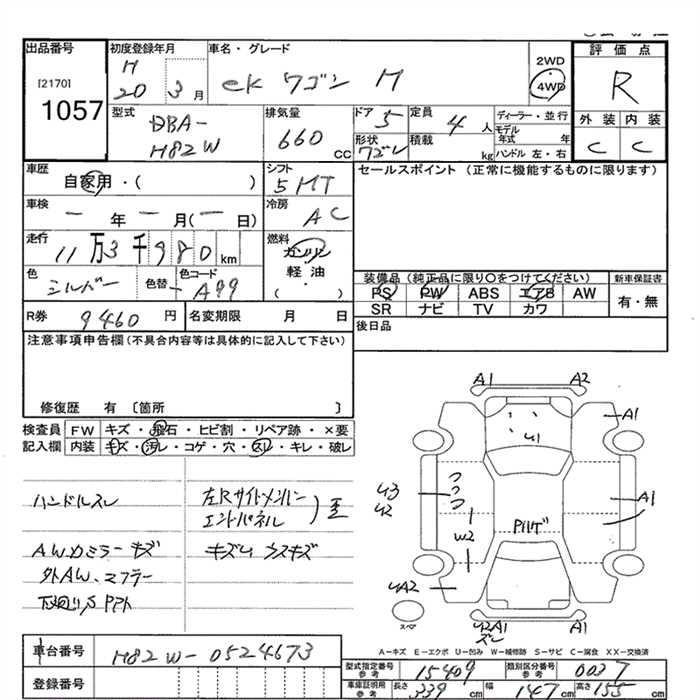 出品番号
[2170]
1057
初度登録年月
H 20 3 月
車名・グレード
ek ワゴン M
2WD
4WD
評価点
R
型式
DBA-
H82W
排気量
660 CC
ドア
5
定員
4 人
形状
ワゴン
積載
kg
ディーラー・並行
モデル年式 年
ハンドル 左・右
外装 内装
C C
車歴
自家用・( )
シフト
5MT
セールスポイント (正常に機能するものに限ります)
車検
ー 年 ー 月 (ー 日)
冷房
AC
走行
11万3千980km
燃料
ガソリン
軽油
( ・ )
色
シルバー
色替 ー
色コード
A99
装備品 (純正品に限り〇をつけてください)
PS PW ABS エアB AW
SR ナビ TV カワ
新車保証書
有・無
R券 9460 円
名変期限 月 日
後日品
注意事項申告欄 (不具合内容等は具体的に記入して下さい)
修復歴 有 〔箇所 〕
検査員 FW キズ・飛石・ヒビ割・リペア跡・×要
記入欄 内装 キズ・汚レ・コゲ・穴・スレ・キレ・破レ
ハンドルスレ
左Rサイドメンバー
エンドパネル
AW.カミラーキズ
キズU ウスキズ
外AW、マフラー
下廻りS
A1 A2
A1
U1
U3
U2
A1
W2
UA2
スペア
U2A1 A1
ズレ
A-キズ E-エクボ U-凹み W-補修跡 S-サビ C-腐食 XX-交換済
車台番号 H82W-0524673
登録番号
型式指定番号 参考 15409
類別区分番号 参考 0037
車庫証明用 参考 長さ 339 cm 幅 147 cm 高さ 155 cm